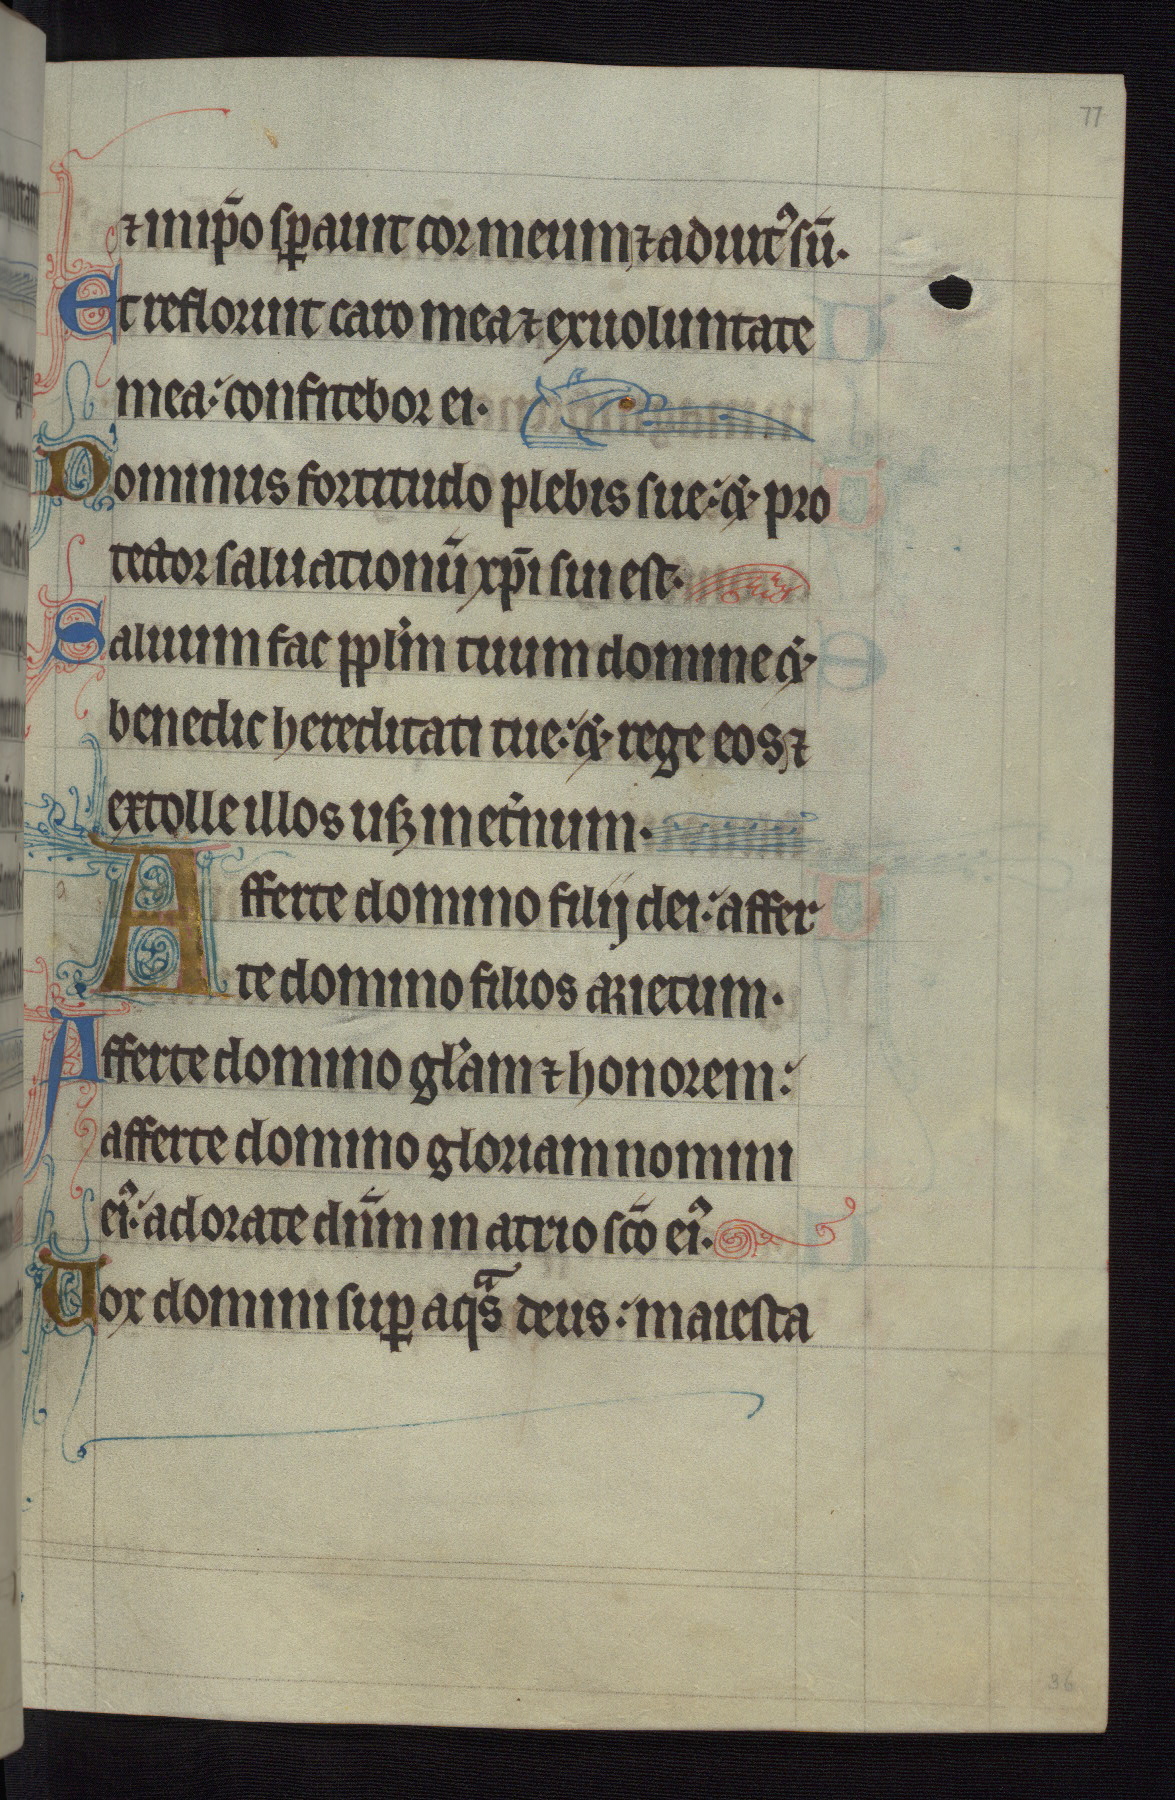 77
⁊ in ip̄o sꝑauit cor meum ⁊ adiut᷒ sū.
Et refloruit caro mea ⁊ ex uoluntate
mea: confitebor ei.
Dominus fortitudo plebis sue: ⁊ pro
tector saluationū xp̄i sui est.
Saluum fac pplm̄ tuum domine ⁊
benedic hereditati tue: ⁊ rege eos ⁊
extolle illos usꝫ in et̄num.
Afferte domino filij dei: affer
te domino filios arietum.
Afferte domino gl̄am ⁊ honorem:
afferte domino gloriam nomini
ei᷒: adorate dn̄m in atrio sc̄o ei᷒.
Uox domini suꝑ aqᷓs deus: maiesta
36